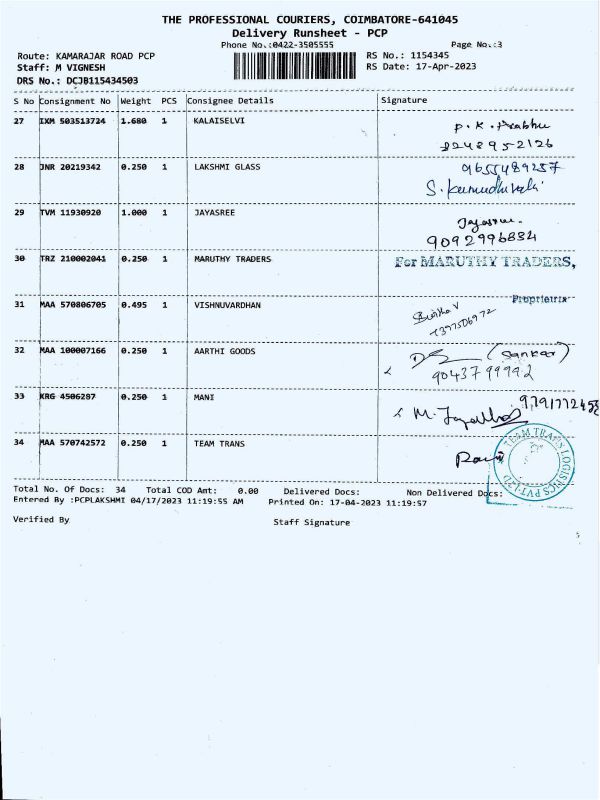 THE PROFESSIONAL COURIERS, COIMBATORE-641045
Delivery Runsheet - PCP
Phone No.:0422-3505555 Page No.:3
Route: KAMARAJAR ROAD PCP RS No.: 1154345
Staff: M VIGNESH RS Date: 17-Apr-2023
DRS No.: DCJB115434503
S No Consignment No Weight PCS Consignee Details Signature
27 IXM 503513724 1.680 1 KALAISELVI P.K.Prabhu
9248952126
28 JNR 20219342 0.250 1 LAKSHMI GLASS 9655489257
S.
29 TVM 11930920 1.000 1 JAYASREE
9092996834
30 TRZ 210002041 0.250 1 MARUTHY TRADERS For MARUTHY TRADERS,
Proprietrix
31 MAA 570806705 0.495 1 VISHNUVARDHAN
7397506972
32 MAA 100007166 0.250 1 AARTHI GOODS (Sankar)
9043799992
33 KRG 4506287 0.250 1 MANI M.
34 MAA 570742572 0.250 1 TEAM TRANS TEAM TRANS LOGISTICS PVT LTD
Total No. Of Docs: 34 Total COD Amt: 0.00 Delivered Docs: Non Delivered Docs:
Entered By :PCPLAKSHMI 04/17/2023 11:19:55 AM Printed On: 17-04-2023 11:19:57
Verified By Staff Signature